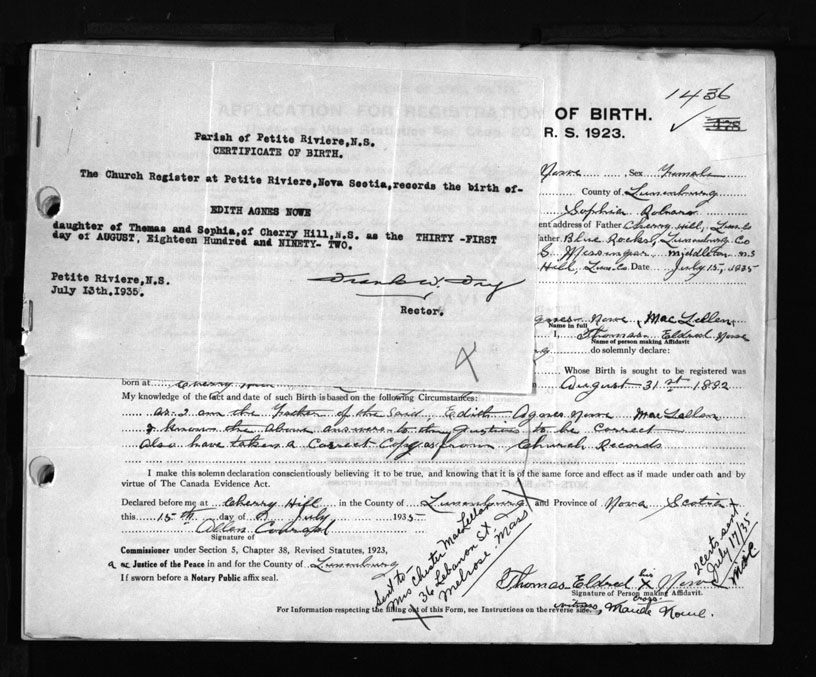 1436
OF BIRTH.
R. S. 1923.
478
Parish of Petite Riviere, N.S.
CERTIFICATE OF BIRTH.
The Church Register at Petite Riviere, Nova Scotia, records the birth of-
EDITH AGNES NOWE
daughter of Thomas and Sophia, of Cherry Hill, N.S. as the THIRTY -FIRST
day of AUGUST, Eighteen Hundred and NINETY- TWO.
Petite Riviere, N.S.
July 13th. 1935.
Rector.
Nowe Sex Female
County of Lunenburg
Sophia
ent address of Father Cherry Hill, Lun. Co
ather Blue Rocks, Lunenburg Co
Middleton N.S
Hill, Lun. Co. Date July 15, 1935
Agnes Nowe, MacLellan
Name in full
I, Thomas Eldred Nowe
Name of person making Affidavit
do solemnly declare:
Whose Birth is sought to be registered was
born at Cherry Hill August 31st 1892
My knowledge of the fact and date of such Birth is based on the following Circumstances:
as I am the Father of the Said Edith Agnes Nowe MacLellan
I know the above answers to the Questions to be Correct
Also have taken a Correct Copy as from Church Records
I make this solemn declaration conscientiously believing it to be true, and knowing that it is of the same force and effect as if made under oath and by
virtue of The Canada Evidence Act.
Declared before me at Cherry Hill in the County of Lunenburg and Province of Nova Scotia
this 15th day of July 1935
Allen Conrad
Signature of
Commissioner under Section 5, Chapter 38, Revised Statutes, 1923,
a or Justice of the Peace in and for the County of Lunenburg
If sworn before a Notary Public affix seal.
Sent to:
Mrs Chester MacLellan
36 Lebanon St
Melrose Mass
2 certs sent
July 17/35
Mac
Thomas Eldred his X Nowe
Signature of Person making Affidavit.
cross
For Information respecting the filling out of this Form, see Instructions on the reverse side.
witness, Maude Nowe.